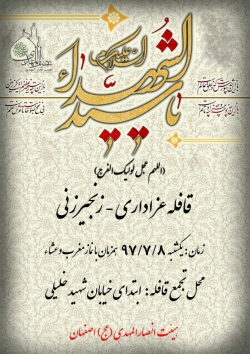 لبیک یا سیدالشهداء
(اللهم عجل لولیک الفرج)
قافله عزاداری - زنجیرزنی
زمان: یکشنبه ۹۷/۷/۸ همزمان با نماز مغرب و عشاء
محل تجمع قافله: ابتدای خیابان شهید خلیلی
هیئت انصارالمهدی (عج) اصفهان